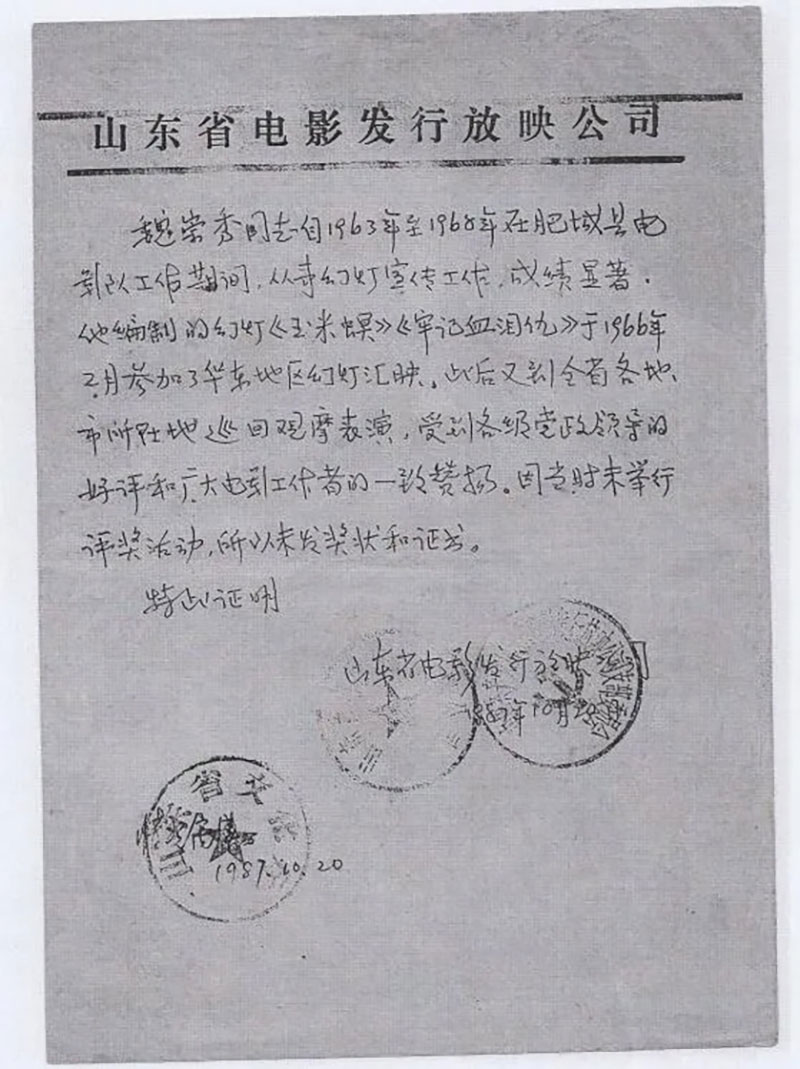 山东省电影发行放映公司
魏崇秀同志自1963年至1968年在肥城县电
影队工作期间,从事幻灯宣传工作,成绩显著。
他编制的幻灯《玉米螟》《牢记血泪仇》于1966年
2月参加了华东地区幻灯汇映。此后又到全省各地、
市所在地巡回观摩表演,受到各级党政领导的
好评和广大电影工作者的一致赞扬。因当时未举行
评奖活动,所以未发奖状和证书。
特此证明
山东省电影发行放映
1987年10月20
情况属实
山 省文化
1987.10.20